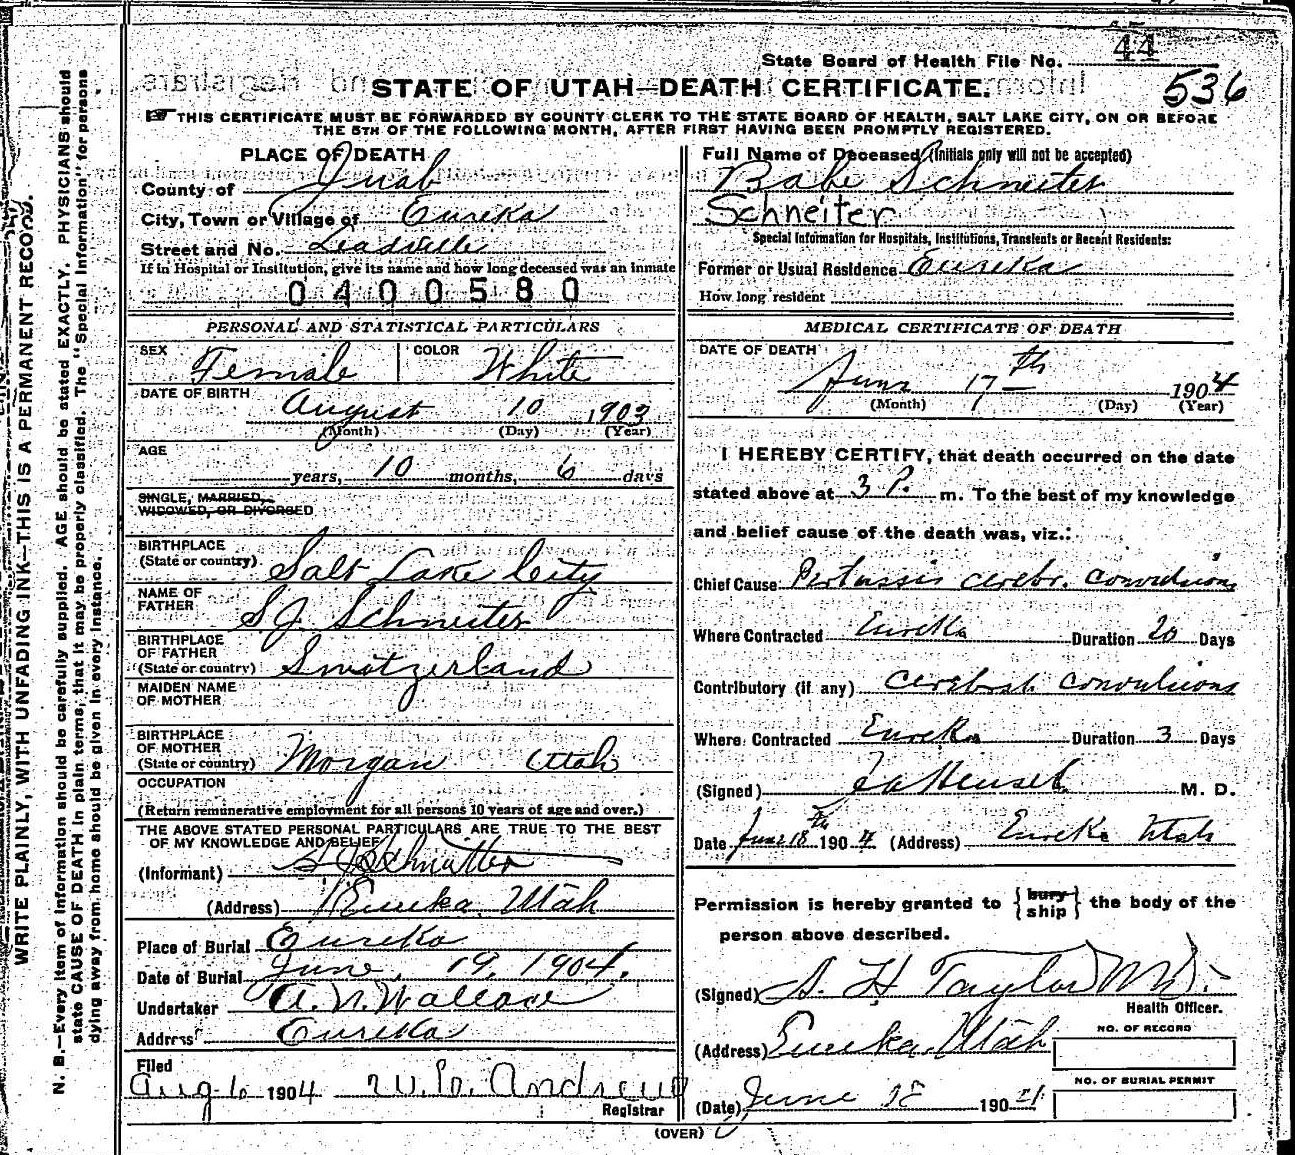 44
State Board of Health File No.
536
STATE OF UTAH—DEATH CERTIFICATE.
THIS CERTIFICATE MUST BE FORWARDED BY COUNTY CLERK TO THE STATE BOARD OF HEALTH, SALT LAKE CITY, ON OR BEFORE
THE 5TH OF THE FOLLOWING MONTH, AFTER FIRST HAVING BEEN PROMPTLY REGISTERED.
PLACE OF DEATH
County of Juab
City, Town or Village of Eureka
Street and No. Leadville
If in Hospital or Institution, give its name and how long deceased was an inmate
0400580
PERSONAL AND STATISTICAL PARTICULARS
SEX Female COLOR White
DATE OF BIRTH
August 10 1903
(Month) (Day) (Year)
AGE
years, 10 months, 6 days
SINGLE, MARRIED,
WIDOWED, OR DIVORCED
BIRTHPLACE
(State or country) Salt Lake City
NAME OF
FATHER S J Schneiter
BIRTHPLACE
OF FATHER
(State or country) Switzerland
MAIDEN NAME
OF MOTHER
BIRTHPLACE
OF MOTHER
(State or country) Morgan Utah
OCCUPATION
(Return remunerative employment for all persons 10 years of age and over.)
THE ABOVE STATED PERSONAL PARTICULARS ARE TRUE TO THE BEST
OF MY KNOWLEDGE AND BELIEF
(Informant) S J Schnitter
(Address) Eureka, Utah
Place of Burial Eureka
Date of Burial June, 19, 1904.
Undertaker A. N. Wallace
Address Eureka
Filed
Aug 6 1904 W. D. Andrew
Registrar
(OVER)
Full Name of Deceased (Initials only will not be accepted)
Babe Schneiter
Schneiter
Special Information for Hospitals, Institutions, Transients or Recent Residents:
Former or Usual Residence Eureka
How long resident
MEDICAL CERTIFICATE OF DEATH
DATE OF DEATH
June 17th 1904
(Month) (Day) (Year)
I HEREBY CERTIFY, that death occurred on the date
stated above at 3 P. m. To the best of my knowledge
and belief cause of the death was, viz.:
Chief Cause Pertussis cerebr. convulsions
Where Contracted Eureka Duration 20 Days
Contributory (if any) cerebral convulsions
Where Contracted Eureka Duration 3 Days
(Signed) Hensel M. D.
Date June 18th 1904. (Address) Eureka Utah
Permission is hereby granted to { bury ship } the body of the
person above described.
(Signed) S. H Taylor MD.
Health Officer.
(Address) Eureka, Utah
NO. OF RECORD
NO. OF BURIAL PERMIT
(Date) June 18 190
WRITE PLAINLY, WITH UNFADING INK—THIS IS A PERMANENT RECORD.
N. B.—Every item of information should be carefully supplied. AGE should be stated EXACTLY. PHYSICIANS should
state CAUSE OF DEATH in plain terms, that it may be properly classified. The "Special Information" for persons
dying away from home should be given in every instance.